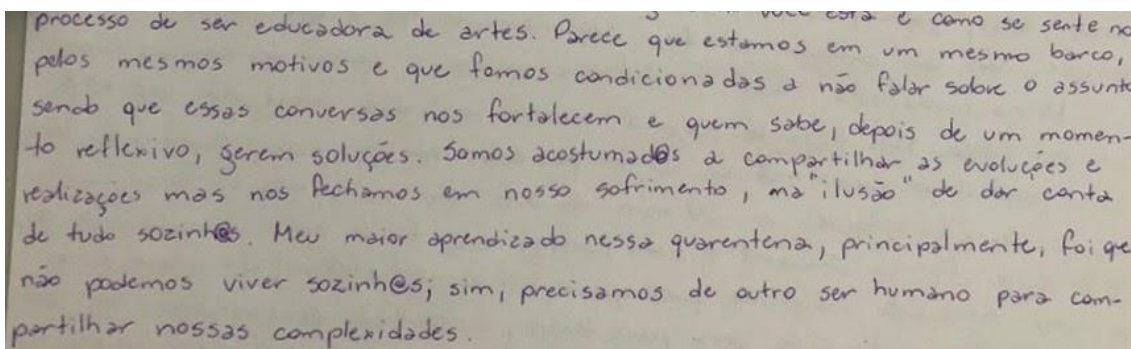 você está e como se sente no
processo de ser educadora de artes. Parece que estamos em um mesmo barco,
pelos mesmos motivos e que fomos condicionadas a não falar sobre o assunto
sendo que essas conversas nos fortalecem e quem sabe, depois de um momen-
to reflexivo, gerem soluções. Somos acostumad@s a compartilhar as evoluções e
realizações mas nos fechamos em nosso sofrimento, na "ilusão" de dar conta
de tudo sozinh@s. Meu maior aprendizado nessa quarentena, principalmente, foi que
não podemos viver sozinh@s; sim, precisamos de outro ser humano para com-
partilhar nossas complexidades.